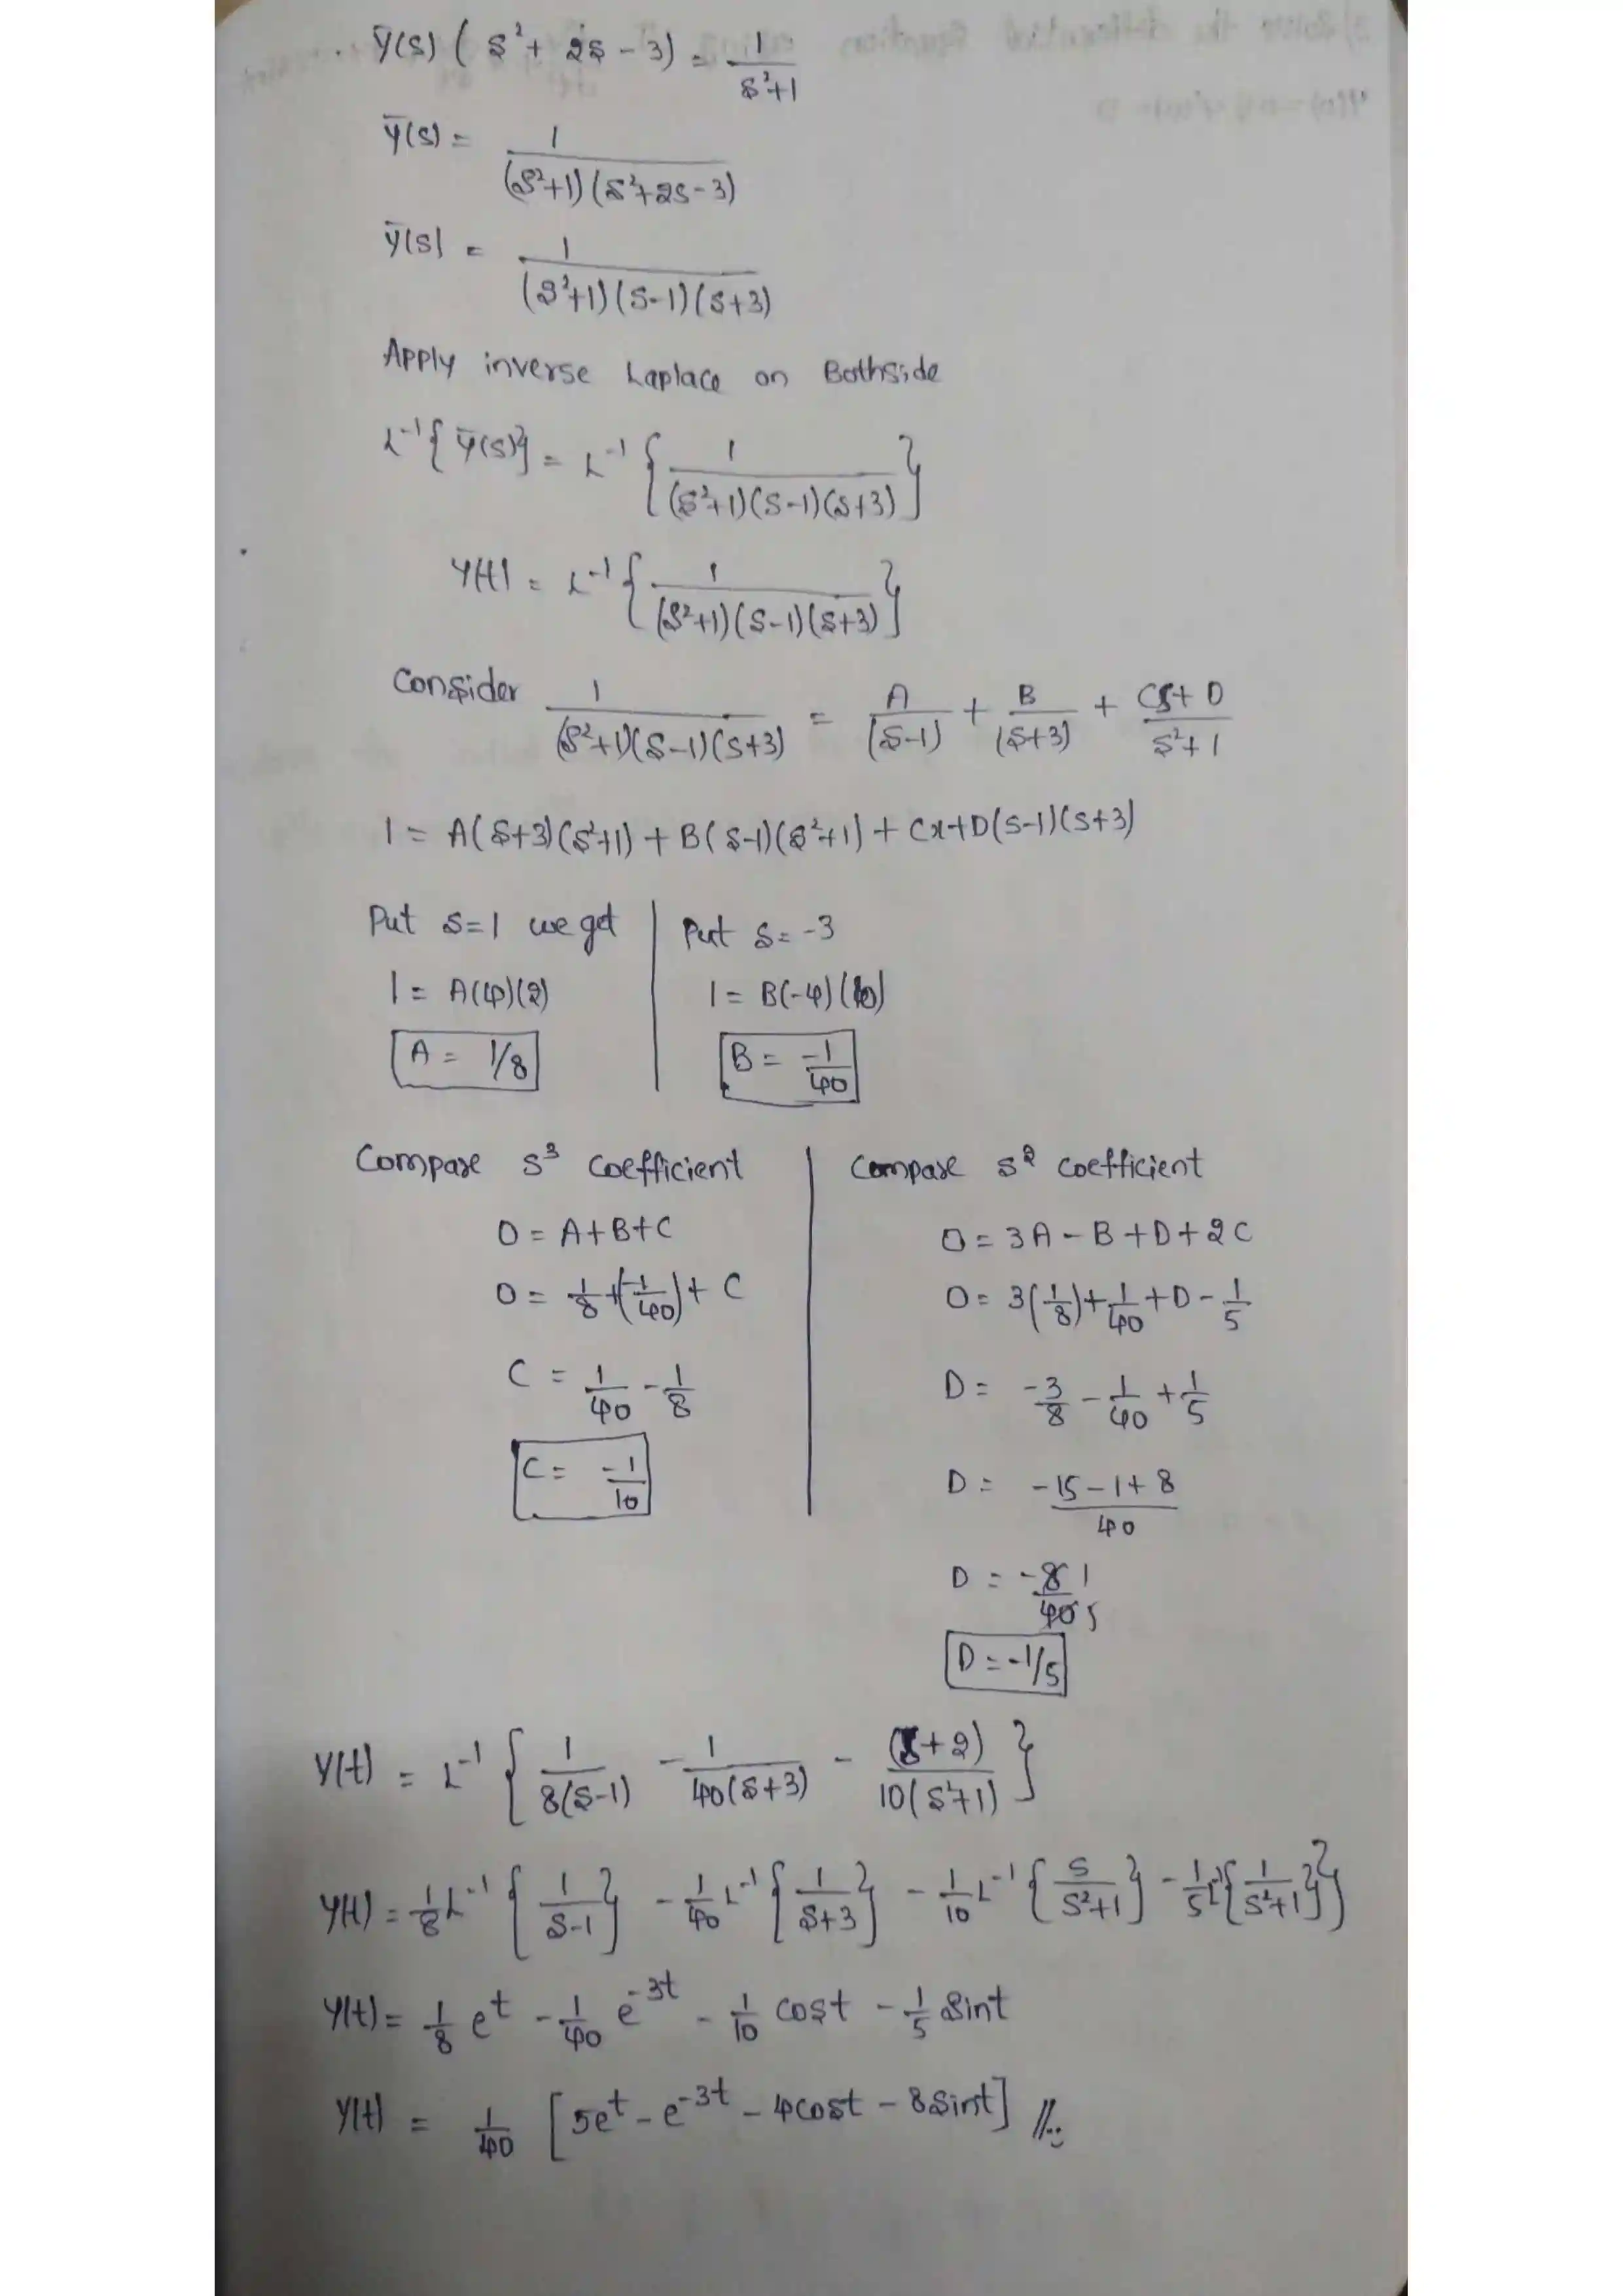 ȳ(s) ( s² + 2s - 3) = 1/(s²+1)
ȳ(s) = 1/((s²+1)(s²+2s-3))
ȳ(s) = 1/((s²+1)(s-1)(s+3))
Apply inverse Laplace on Bothside
L⁻¹{ȳ(s)} = L⁻¹{1/((s²+1)(s-1)(s+3))}
y(t) = L⁻¹{1/((s²+1)(s-1)(s+3))}
Consider 1/((s²+1)(s-1)(s+3)) = A/(s-1) + B/(s+3) + (Cs+D)/(s²+1)
1 = A(s+3)(s²+1) + B(s-1)(s²+1) + Cx+D(s-1)(s+3)
Put s=1 we get
1 = A(4)(2)
A = 1/8
Put s = -3
1 = B(-4)(10)
B = -1/40
Compare s³ coefficient
0 = A+B+C
0 = 1/8 + (-1/40) + C
C = 1/40 - 1/8
C = -1/10
Compare s² coefficient
0 = 3A - B + D + 2C
0 = 3(1/8) + 1/40 + D - 1/5
D = -3/8 - 1/40 + 1/5
D = (-15-1+8)/40
D = -8/40 1/5
D = -1/5
y(t) = L⁻¹{1/(8(s-1)) - 1/(40(s+3)) - (s+2)/(10(s²+1))}
y(t) = 1/8 L⁻¹{1/(s-1)} - 1/40 L⁻¹{1/(s+3)} - 1/10 L⁻¹{s/(s²+1)} - 1/5 L⁻¹{1/(s²+1)}}
y(t) = 1/8 e^t - 1/40 e^-3t - 1/10 cost - 1/5 sint
y(t) = 1/40 [5e^t - e^-3t - 4cost - 8sint] //